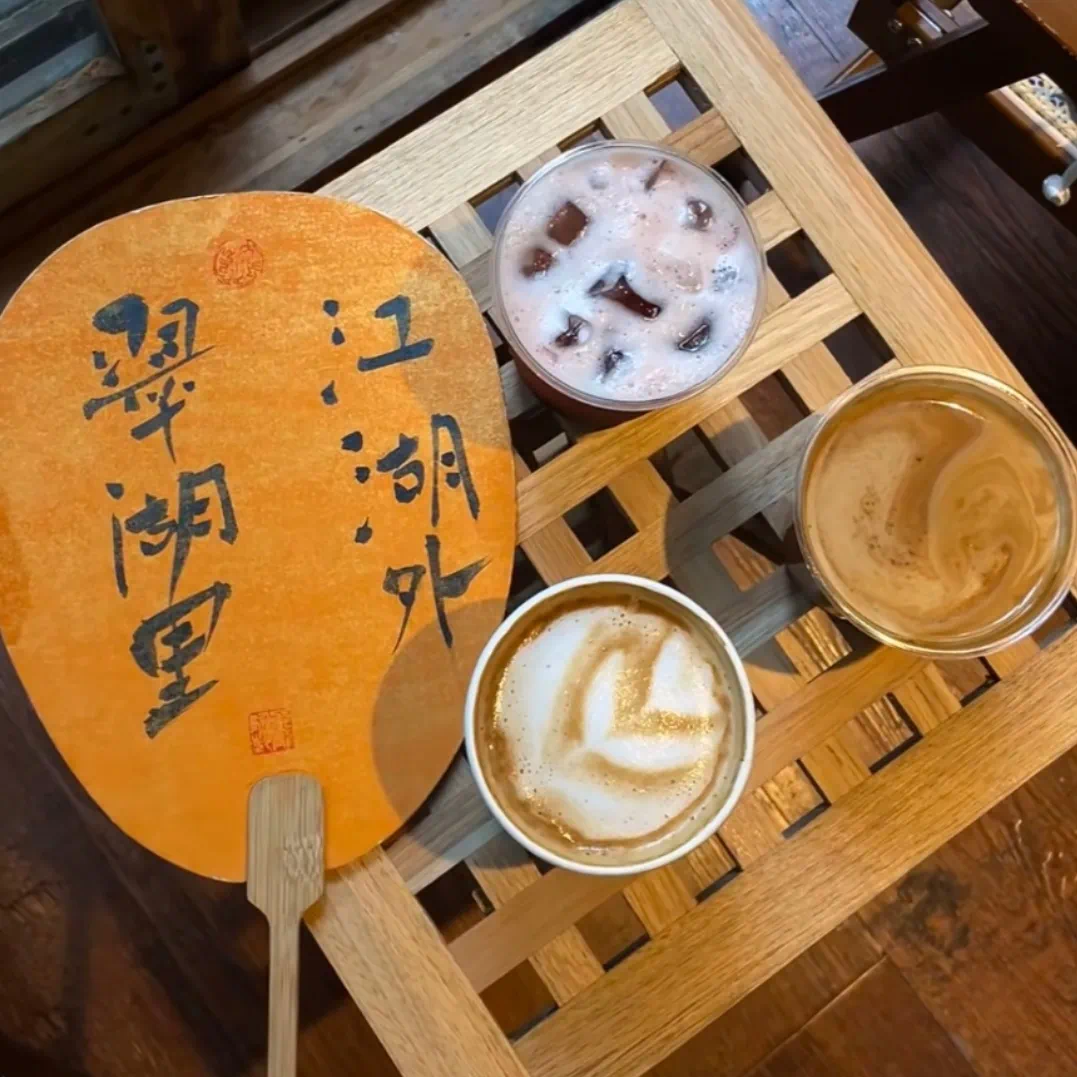 江湖外
翠湖里